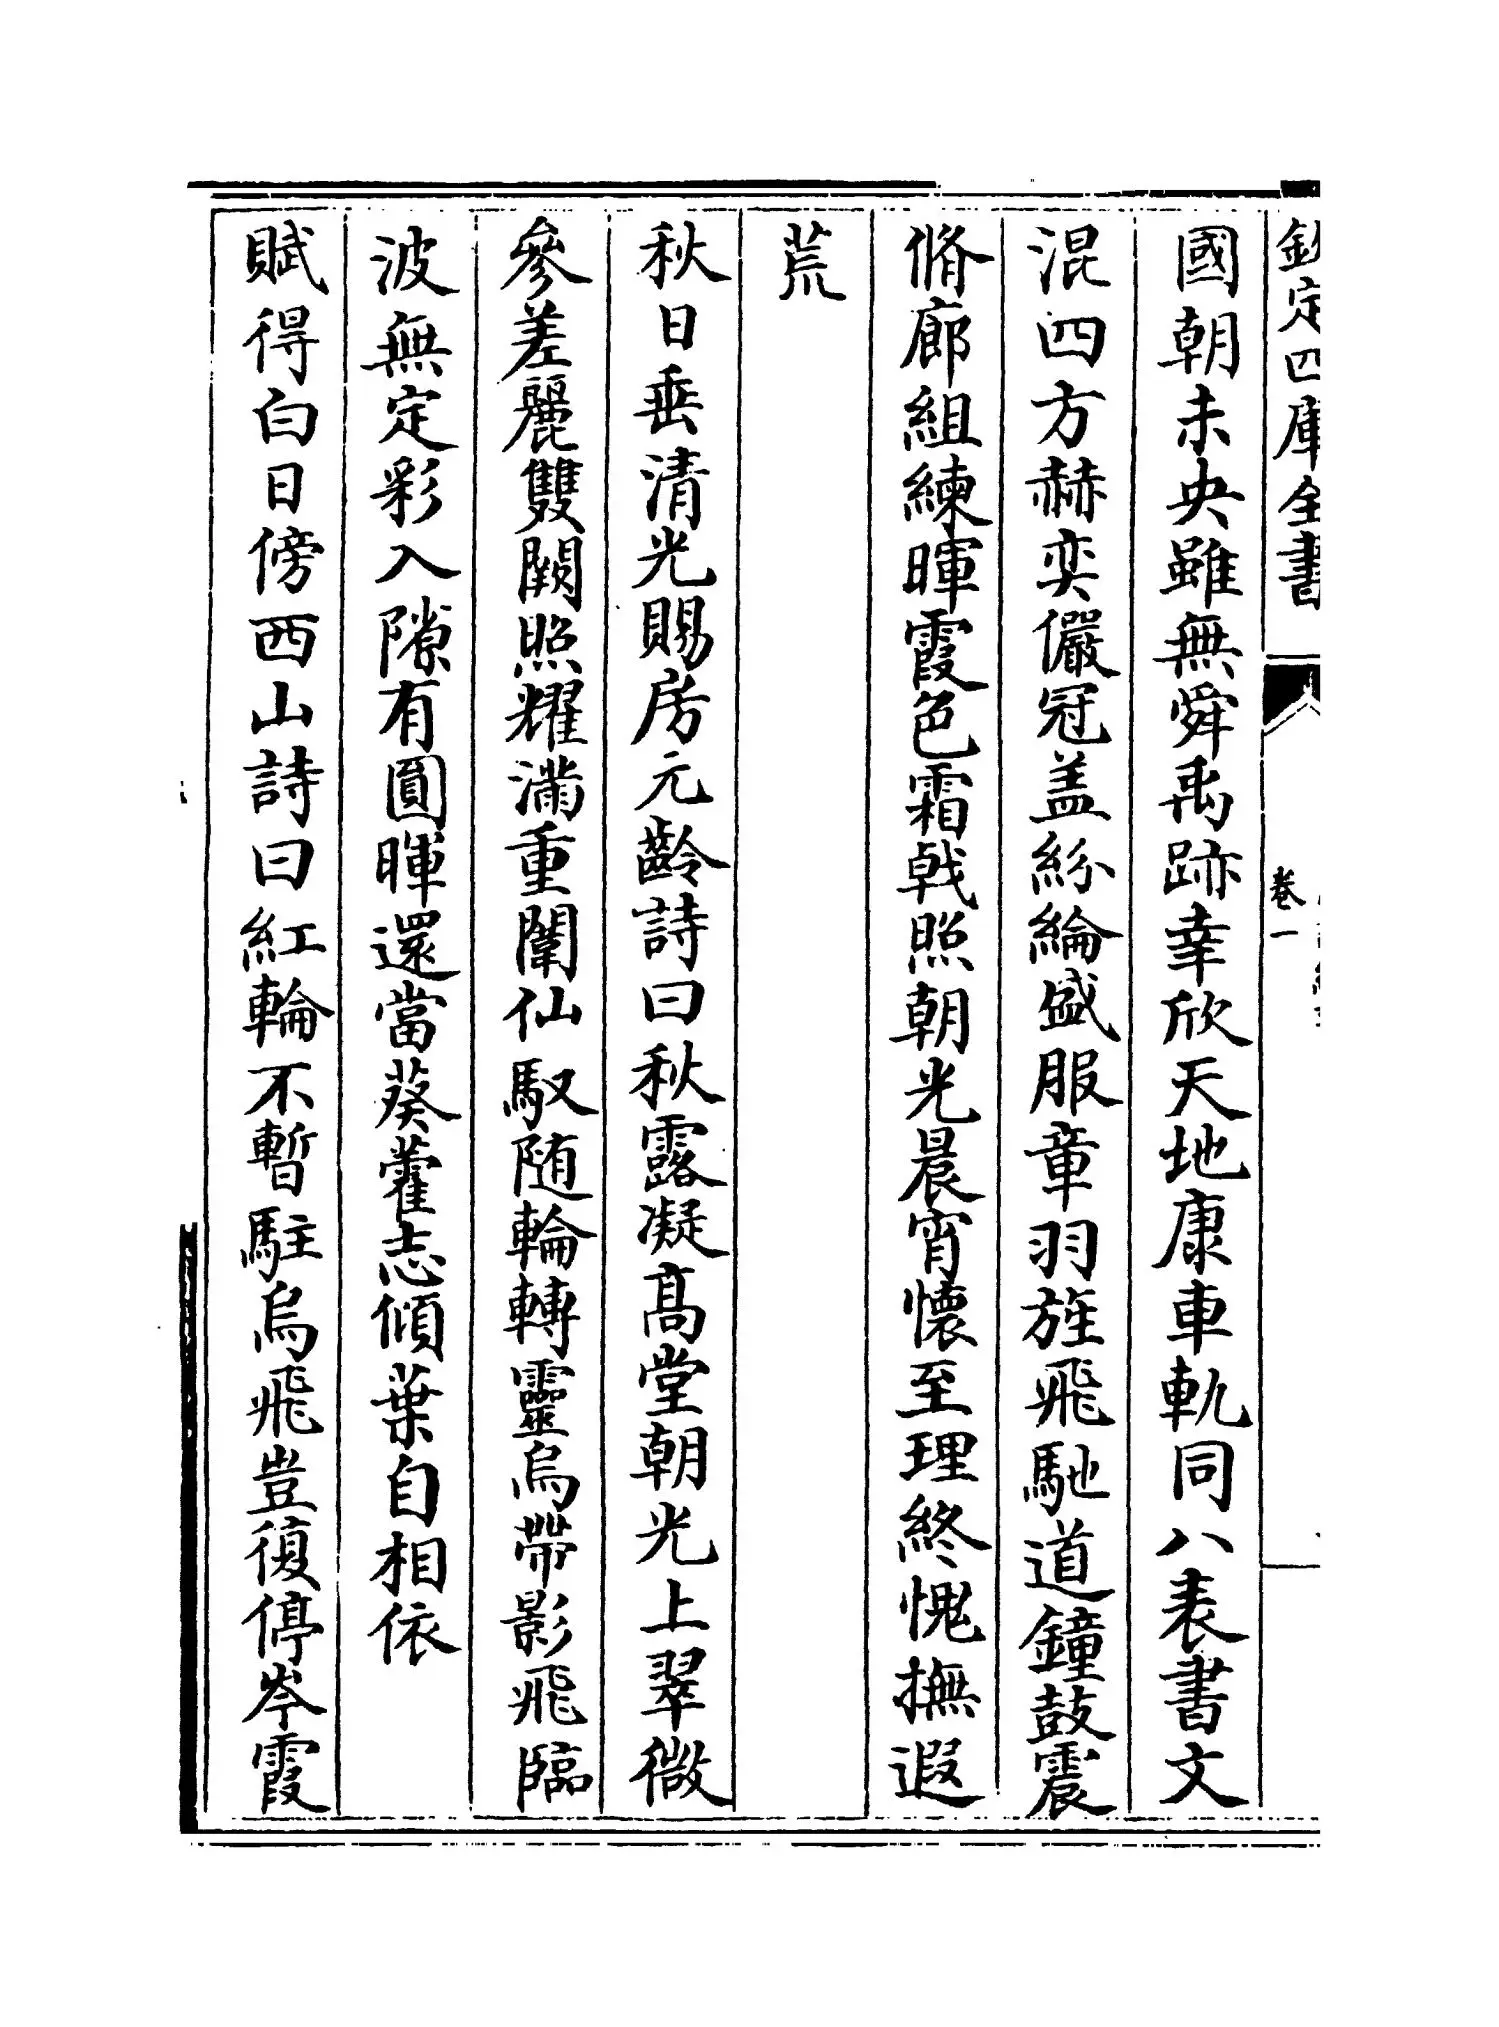 欽定四庫全書
卷一
國朝未央雖無舜禹跡幸欣天地康車軌同八表書文
混四方赫奕儼冠盖紛綸盛服章羽旌飛馳道鐘鼓震
脩廊組練暉霞色霜戟照朝光晨宵懷至理終愧撫遐
荒
秋日垂清光賜房元齡詩曰秋露凝髙堂朝光上翠微
參差麗雙闕照耀滿重闈仙馭随輪轉靈烏帶影飛臨
波無定彩入隙有圓暉還當葵藿志傾葉自相依
賦得白日傍西山詩曰紅輪不暫駐烏飛豈復停岑霞